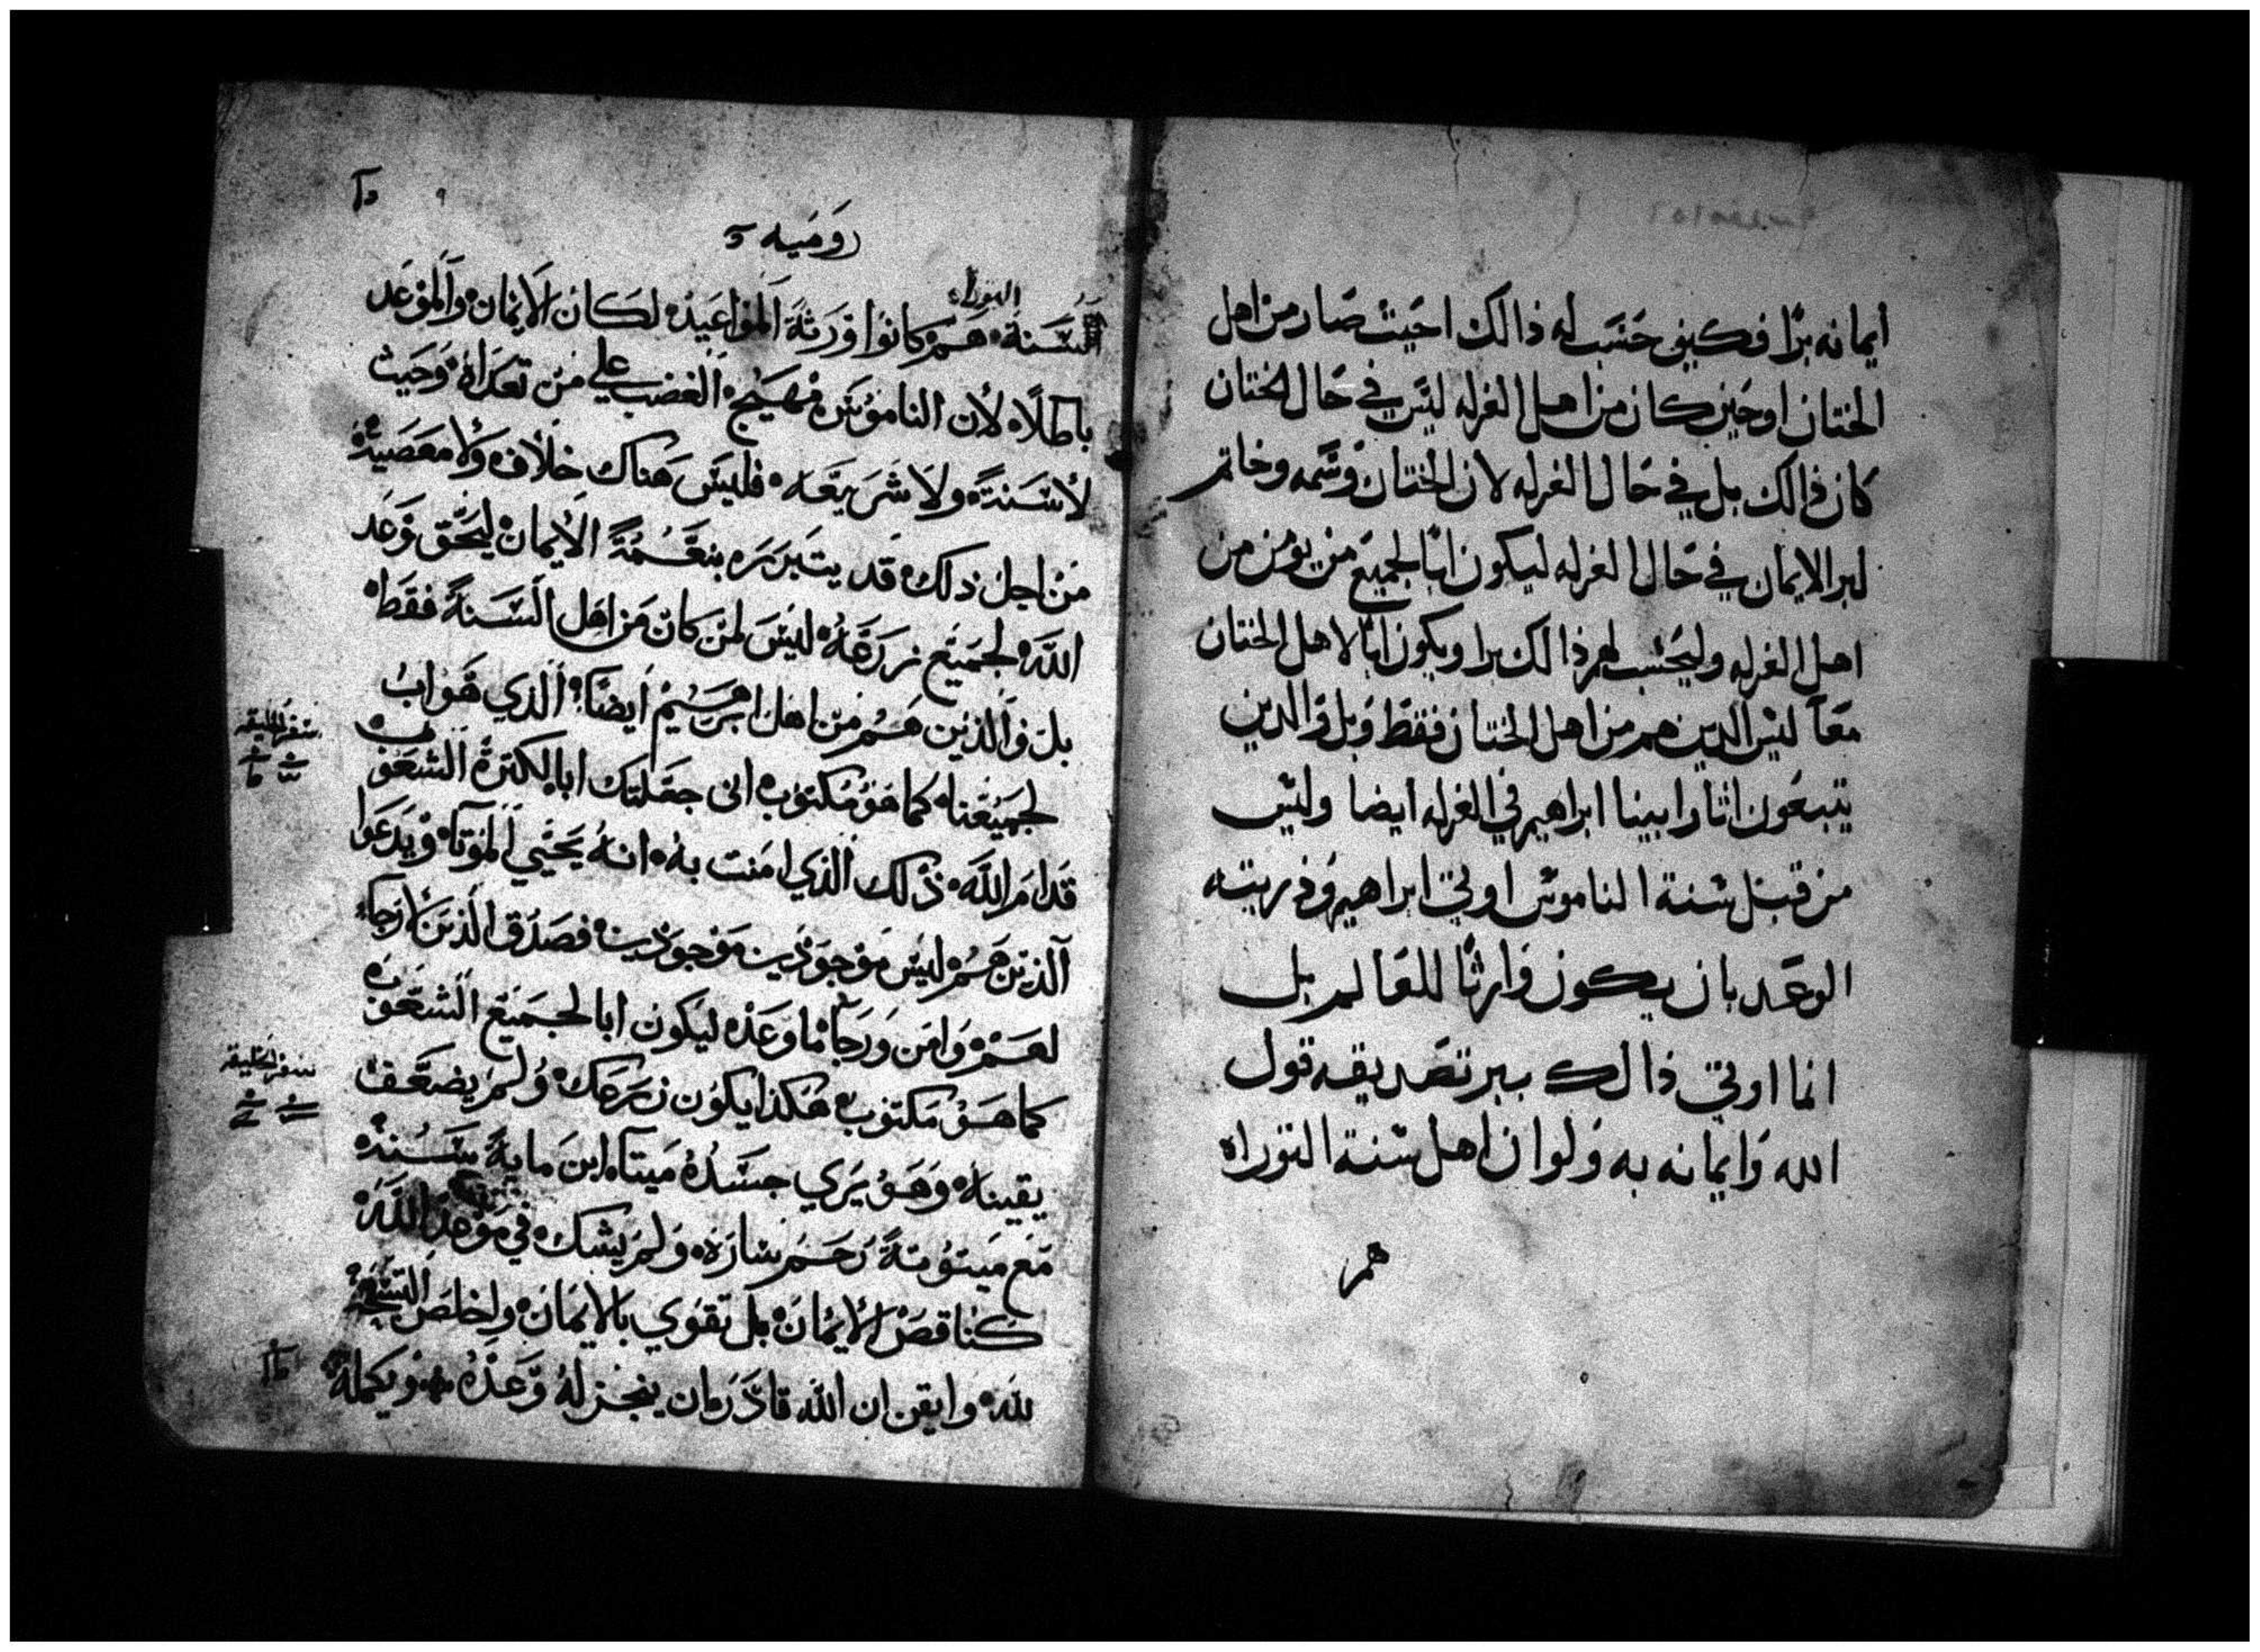 ايمانه برًا فكيف حسب له ذالك احيث صار من اهل
الختان او حين كان من اهل الغرله ليس في حال الختان
كان ذالك بل في حال الغرله لان الختان وسمه وخاتم
لبر الايمان في حال الغرله ليكون ابًا لجميع من يومن من
اهل الغرله وليحسب لهم ذالك برا ويكون ابًا لاهل الختان
معًا ليس الدين هم من اهل الختان فقط وبل والدين
يتبعون اثار ابينا ابراهيم في الغرله ايضا وليس
من قبل سنة الناموس اوتي ابراهيم وذريته
الوعد بان يكون وارثًا للعالم بل
انما اوتي ذالك ببر تصديقه قول
الله وايمانه به ولو ان اهل سنة التوراه
هم
روميه
التوراه
السنة هم كانوا ورثة المواعيد لكان الايمان والموعد
باطلاً لان الناموس مهيج الغضب علي من تعداه وحيث
لا سنة ولا شريعه فليس هناك خلاف ولا معصية
من اجل ذلك قد يتبرر بنعمة الايمان ليحق وعد
الله لجميع زرعه ليس لمن كان من اهل السنة فقط
بل والذين هم من اهل ابرهيم ايضًا الذي هو اب
لجميعنا كما هو مكتوب اني جعلتك ابا لكترة الشعوب
قدام الله ذلك الذي امنت به انه يحيي الموتا ويدعوا
الذين هم ليس موجودين موجودين فصدق الذين لا رجاء
لهم وامن ورجا ما وعد ليكون ابا لجميع الشعوب
كما هو مكتوب هكذا يكون زرعك ولم يضعف
يقينا وهو يري جسده ميتا ابن ماية سنة
مع ميتوتة رحم ساره ولم يشك في موعد الله
كناقص الايمان بل تقوي بالايمان واخلص التسبحة
لله وايقن ان الله قادر ان ينجز له وعده ويكمله
سفر الخليقه
سفر الخليقه